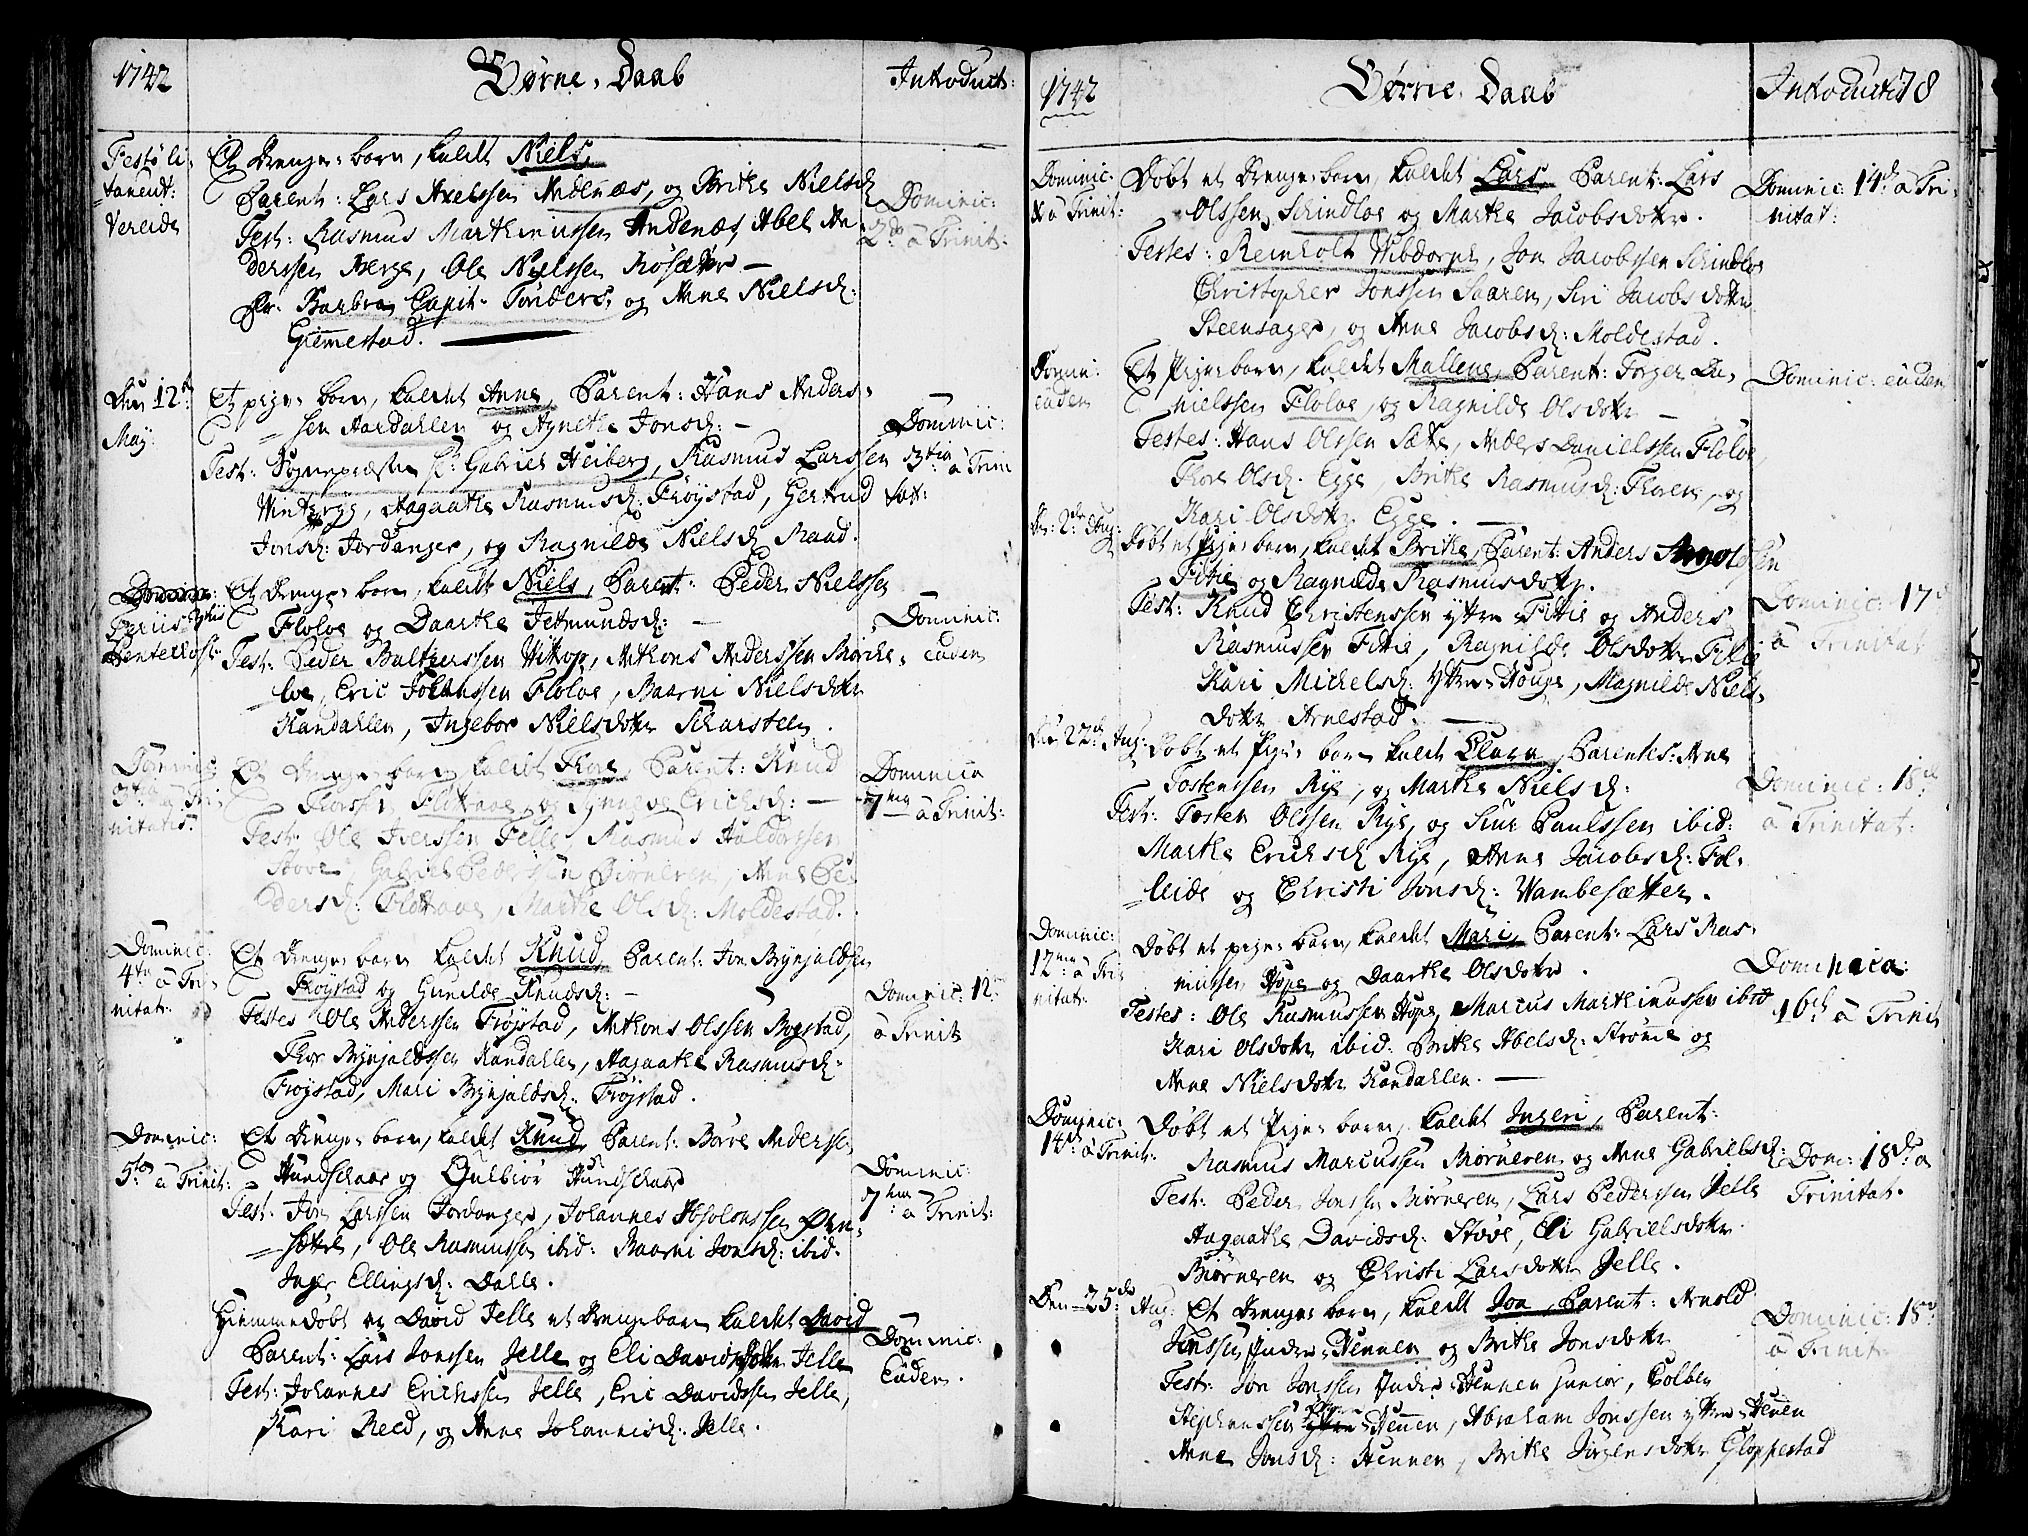 1742 Børne-Daab Introduct:
Festo li-
tanent:
Vereide
Et Drenge-barn, kaldet Niels,
Parent: Lars Axelssen Andenæs, og Brithe Nielsd:
Test: Rasmus Marthinussen Andenæs, Abel An-
derssen Berge, Ole Nielssen Røsæter
Fr: Barbra Capit. Tønders, og Anne Nielsd:
Gimmestad.
Dominic:
2da a Trinit:
Den 12te
May
Et pige-barn, kaldet Anne, Parent: Hans Anders-
sen Aardahlen og Agnethe Jonsd:
Test: Sognepræsten Hr: Gabriel Heiberg, Rasmus Larssen
Myklebyg, Aagaathe Rasmusd: Frøystad, Gertrud
Jonsd: Jordanger, og Ragnilde Nielsd: Raad.
Dominic:
3tia a Trini
tat:
Pentecost:
Et Drenge-barn, kaldet Niels, Parent: Peder Nielssen
Floloe og Daarthe Jettmundsd:
Test: Peder Baltzerssen Wikop, Anthons Anderssen Børche-
loe, Eric Johanssen Floloe, Baarni Nielsdotter
Kandahlen, Ingebor Nielsdotter Scharsteen.
Dominic:
eadem
Dominic:
3tia a Tri-
nitatis
Et Drenge-barn, kaldet Thore, Parent: Knud
Thorssen Flottene, og Synneve Erichsd:
Test: Ole Iverssen Jelle, Rasmus Haldorssen
Støve, Gabriel Pederssen Biørneren, Anne Pe-
dersd: Flottene, Marthe Olsd: Moldestad.
Dominica
7ma a Trinit:
Dominic:
4ta a Tri-
nitat:
Et Drenge-barn kaldet Knud, Parent: Jon Brynjaldssen
Frøystad og Gunilde Knudsd:
Testes Ole Anderssen Frøystad, Anthons Olssen Bogstad,
Thor Brynjaldssen Kandahlen, Aagaathe Rasmusd:
Frøystad, Mari Brynjaldsd: Frøystad.
Dominic: 12
a Trinit
Dominic:
5ta a Trinit:
Et Drenge-barn, kaldet Knud, Parent: Børe Anderse
Hundschaar og Gulbiør Hundschaar
Test: Jon Larssen Jordanger, Johannes Absolonssen Øvre-
sætre, Ole Rasmussen ibid: Baarni Jonsd: ibid.
Inger Ellingsd: Dalle.
Dominic:
7ma a Trinit:
Hjemmedøbt av David Jelle et Drengebarn kaldet David
Parent: Lars Jonssen Jelle og Eli Davidsdotter Jelle
Test: Johannes Erichssen Jelle, Eric Davidssen Jelle,
Kari Reed, og Anne Johannisd: Jelle.
Dominic:
Eadem.
1742 Børne-Daab Introduct: 78
Dominic:
X a Trinit:
Døbt et Drenge-barn, kaldet Lars Parent: Lars
Olssen Schindloe og Marthe Jacobsdotter.
Testes: Reinholt Wibdorph, Jon Jacobssen Schindloe
Christopher Jonssen Saaren, Siri Jacobsdotter
Steensager, og Anne Jacobsd: Moldestad.
Dominic: 14de a Tri-
nitat:
Domin:
eadem
Et Pigebarn, kaldet Mallene, Parent: Torger Da-
nielssen Floloe, og Ragnilde Olsdotter
Testes: Hans Olssen Sæte, Anders Danielssen Floloe,
Thore Olsd: Egge, Brithe Rasmusd: Floloe, og
Kari Olsdotter Egge.
Dominic: eadem
Den 2de Aug:
Døbt et Pige-barn, kaldet Brithe, Parent: Anders Arnolssen
Fitie og Ragnilde Rasmusdotter.
Test: Knud Christenssen yttre-Fitie og Anders
Rasmussen Fitie, Ragnilde Olsdotter Fitie
Kari Michelsd: yttre-Houge, Magnilde Niels-
dotter Arnestad.
Dominic: 17de
a Trinitat
Den 22de Aug:
Døbt et Pige-barn kaldet Clara, Parentes: Arne
Tostenssen Rye, og Marthe Nielsd:
Test: Tosten Olssen Rye, og Siur Paulssen ibid:
Marthe Erichsd: Rye, Anne Jacobsd: Fol-
leide og Christi Jonsd: Wambesætter.
Dominic: 18de
a Trinitat:
Dominic:
12ma a Tri-
nitat:
Døbt et pige-barn, kaldet Mari, Parent: Lars Ras-
mussen Hope og Daarthe Olsdotter.
Testes: Ole Rasmussen Hope, Marcus Marthinussen ibid
Kari Olsdotter ibid: Brithe Abelsd: Strømme og
Anne Nielsdotter Kandahlen.
Dominica:
16de a Trinit
Dominic:
14de a Trinit:
Døbt et Pige-barn, kaldet Ingeri, Parent:
Rasmus Marcussen Biørneren og Anne Gabrielsd:
Test: Peder Jonssen Biørneren, Lars Pederssen Jelle
Aagaathe Davidsd: Støve, Eli Gabrielsdotter
Biørneren og Christi Larsdotter Jelle.
Dom: 18de a
Trinitat.
Den 25de Aug:
Et Drenge-barn, kaldet Jon, Parent: Arnold
Jonssen Indre-Hennen og Brithe Jonsdotter
Test: Jon Jonssen Indre-Hennen junior, Colben
Stephenssen Hennen, Abraham Jonssen yttre-Hennen
Anne Jonsd: Hennen, Brithe Jørgensdotter Gloppestad
Dominic: 18de
a Trinit: